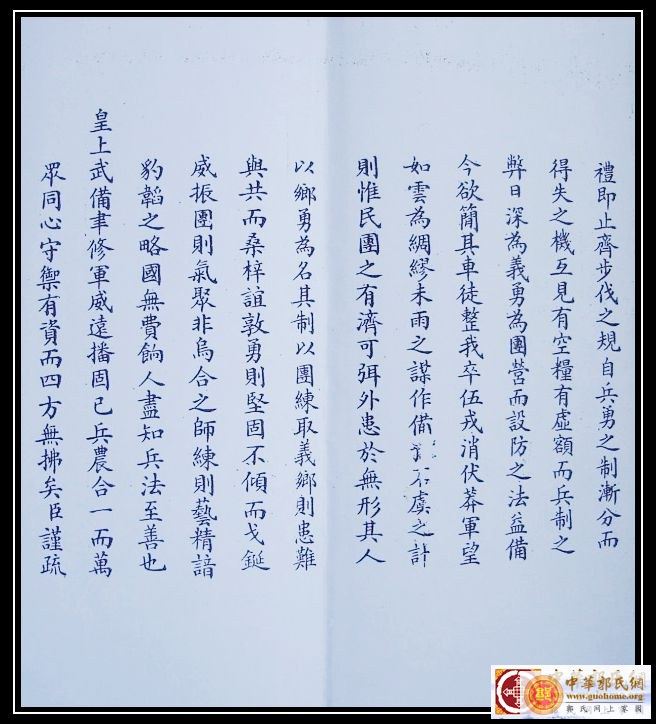 禮即止齊步伐之規自兵勇之制漸分而
得失之機互見有空糧有虛額而兵制之
弊日深為義勇為團營而設防之法益備
今欲簡其車徒整我卒伍戎消伏莽軍望
如雲為綢繆未雨之謀作備不虞之計
則惟民團之有濟可弭外患於無形其人
以鄉勇為名其制以團練取義鄉則患難
與共而桑梓誼敦勇則堅固不傾而戈鋋
威振團則氣聚非烏合之師練則藝精諳
豹韜之略國無費餉人盡知兵法至善也
皇上武備聿修軍威遠播固已兵農合一而萬
眾同心守禦有資而四方無拂矣臣謹疏
中華郭氏網
www.guohome.org
郭氏網上家園